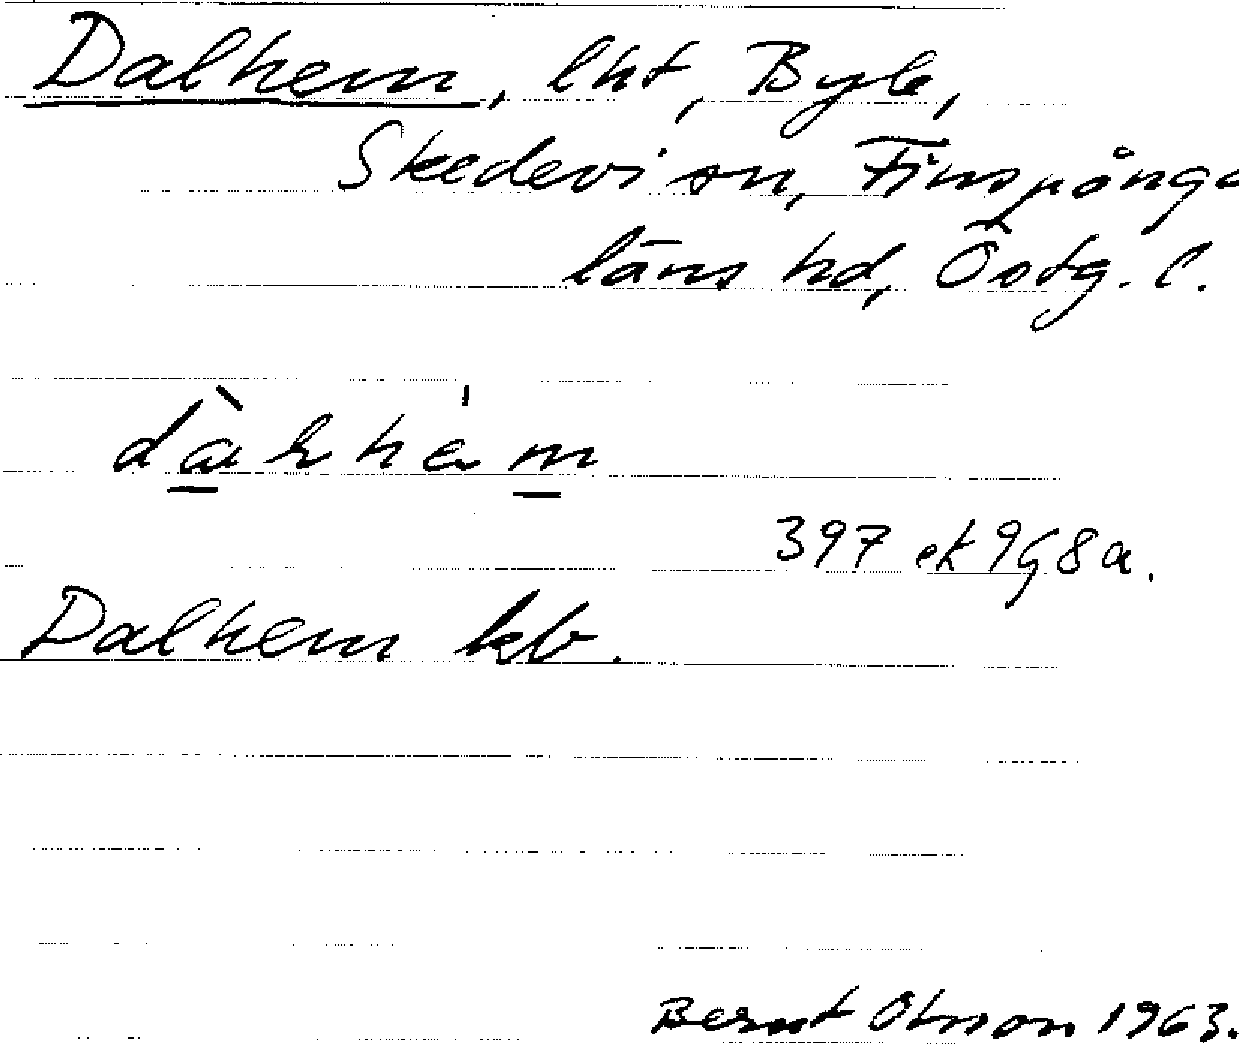 Dalhem, lht, Byle,
Skedevi sn, Finspånga
läns hd, Östg. l.
dàlhèm
397 ek 9G8a.
Dalhem kb.
Bernt Olsson 1963.